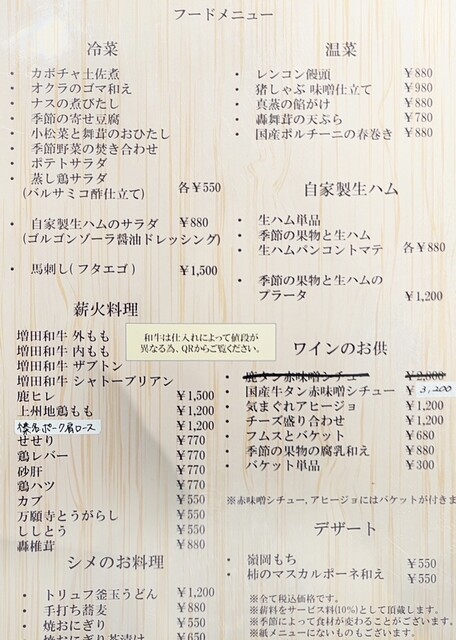 フードメニュー
冷菜
・ カボチャ土佐煮
・ オクラのゴマ和え
・ ナスの煮びたし
・ 季節の寄せ豆腐
・ 小松菜と舞茸のおひたし
・ 季節野菜の焚き合わせ
・ ポテトサラダ
・ 蒸し鶏サラダ
(バルサミコ酢仕立て) 各￥550
・ 自家製生ハムのサラダ ￥880
(ゴルゴンゾーラ醤油ドレッシング)
・ 馬刺し(フタエゴ) ￥1,500
薪火料理
和牛は仕入れによって値段が
異なる為、QRからご覧ください。
増田和牛 外もも
増田和牛 内もも
増田和牛 ザブトン
増田和牛 シャトーブリアン
鹿ヒレ ￥1,500
上州地鶏もも ￥1,200
榛名ポーク肩ロース ￥1,200
せせり ￥770
鶏レバー ￥770
砂肝 ￥770
鶏ハツ ￥770
カブ ￥550
万願寺とうがらし ￥550
ししとう ￥550
轟椎茸 ￥880
シメのお料理
・ トリュフ釜玉うどん ￥1,200
・ 手打ち蕎麦 ￥880
・ 焼おにぎり ￥550
・ 焼おにぎり茶漬け ￥650
温菜
・ レンコン饅頭 ￥880
・ 猪しゃぶ 味噌仕立て ￥980
・ 真蒸の餡がけ ￥880
・ 轟舞茸の天ぷら ￥780
・ 国産ポルチーニの春巻き ￥880
自家製生ハム
・ 生ハム単品
・ 季節の果物と生ハム
・ 生ハムパンコントマテ 各￥880
・ 季節の果物と生ハムの
ブラータ ￥1,200
ワインのお供
・ 鹿タン赤味噌シチュー ￥2,800
・ 国産牛タン赤味噌シチュー ￥3,200
・ 気まぐれアヒージョ ￥1,200
・ チーズ盛り合わせ ￥1,200
・ フムスとバケット ￥680
・ 季節の果物の腐乳和え ￥880
・ バケット単品 ￥300
※赤味噌シチュー,アヒージョにはバケットが付きま
デザート
・ 嶺岡もち ￥550
・ 柿のマスカルポーネ和え ￥550
※全て税込価格です。
※薪料をサービス料(10%)として頂戴します。
※季節によって食材が変わることがございます。
※紙メニューにないものもございます。